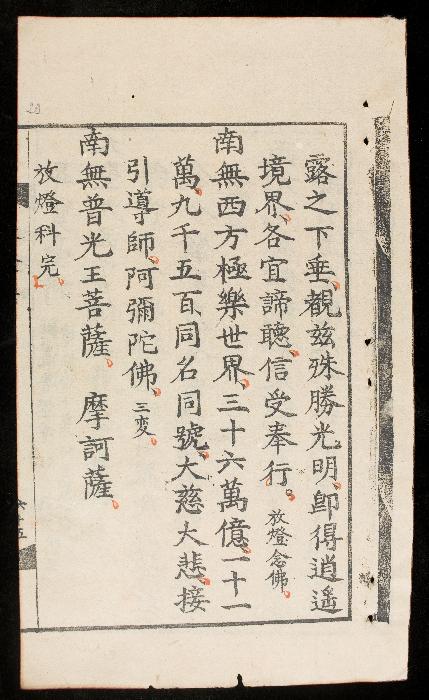 露之下垂覩茲殊勝光明卽得逍遙
境界各宜諦聽信受奉行。放燈念佛
南無西方極樂世界三十六萬億一十一
萬九千五百同名同號大慈大悲接
引導師阿彌陀佛三変
南無普光王菩薩　摩訶薩
放燈科完
六十五